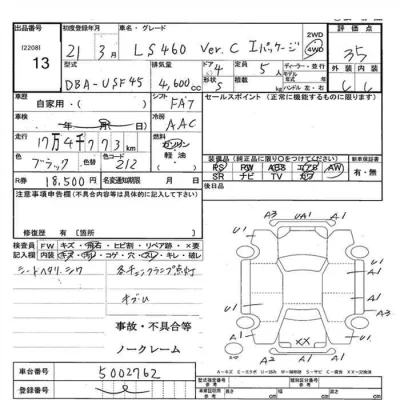 出品番号
(2208)
13
初度登録年月
21年3月
車名・グレード
LS460 Ver.C Iパッケージ
2WD
4WD
評価点
3.5
外装 内装
C C
型式
DBA-USF45
排気量
4,600cc
ドア
4
形状
S
定員
5人
ディーラー・並行
モデル
年式
ハンドル 左・右
車歴
自家用・( )
シフト
FA7
セールスポイント (正常に機能するものに限ります)
車検
年 月
冷房
AAC
走行
17万4千773km
燃料
ガソリン
軽油
色
ブラック
色替
カラーNo.
212
R券
18,500円
名変通知期限
月 日
装備品(純正品に限り〇をつけてください)
新車保証書
PS PW ABS エアB AW
SR ナビ TV カワ
有・無
後日品
注意事項申告欄(不具合内容等は具体的に記入して下さい)
修復歴 有【箇所 】
検査員
記入欄
FW キズ・飛石・ヒビ割・リペア跡・×要
内装 キズ・汚・コゲ・穴・スレ・キレ・破レ
シートヘタリ・シワ
各チェックランプ点灯
オブU
事故・不具合等
ノークレーム
車台番号
5002762
登録番号
型式指定番号
類別区分番号
A3
UA1
A1
U1
A1
U1
A1
U1
U1
A1
XX
A1
A2
A1